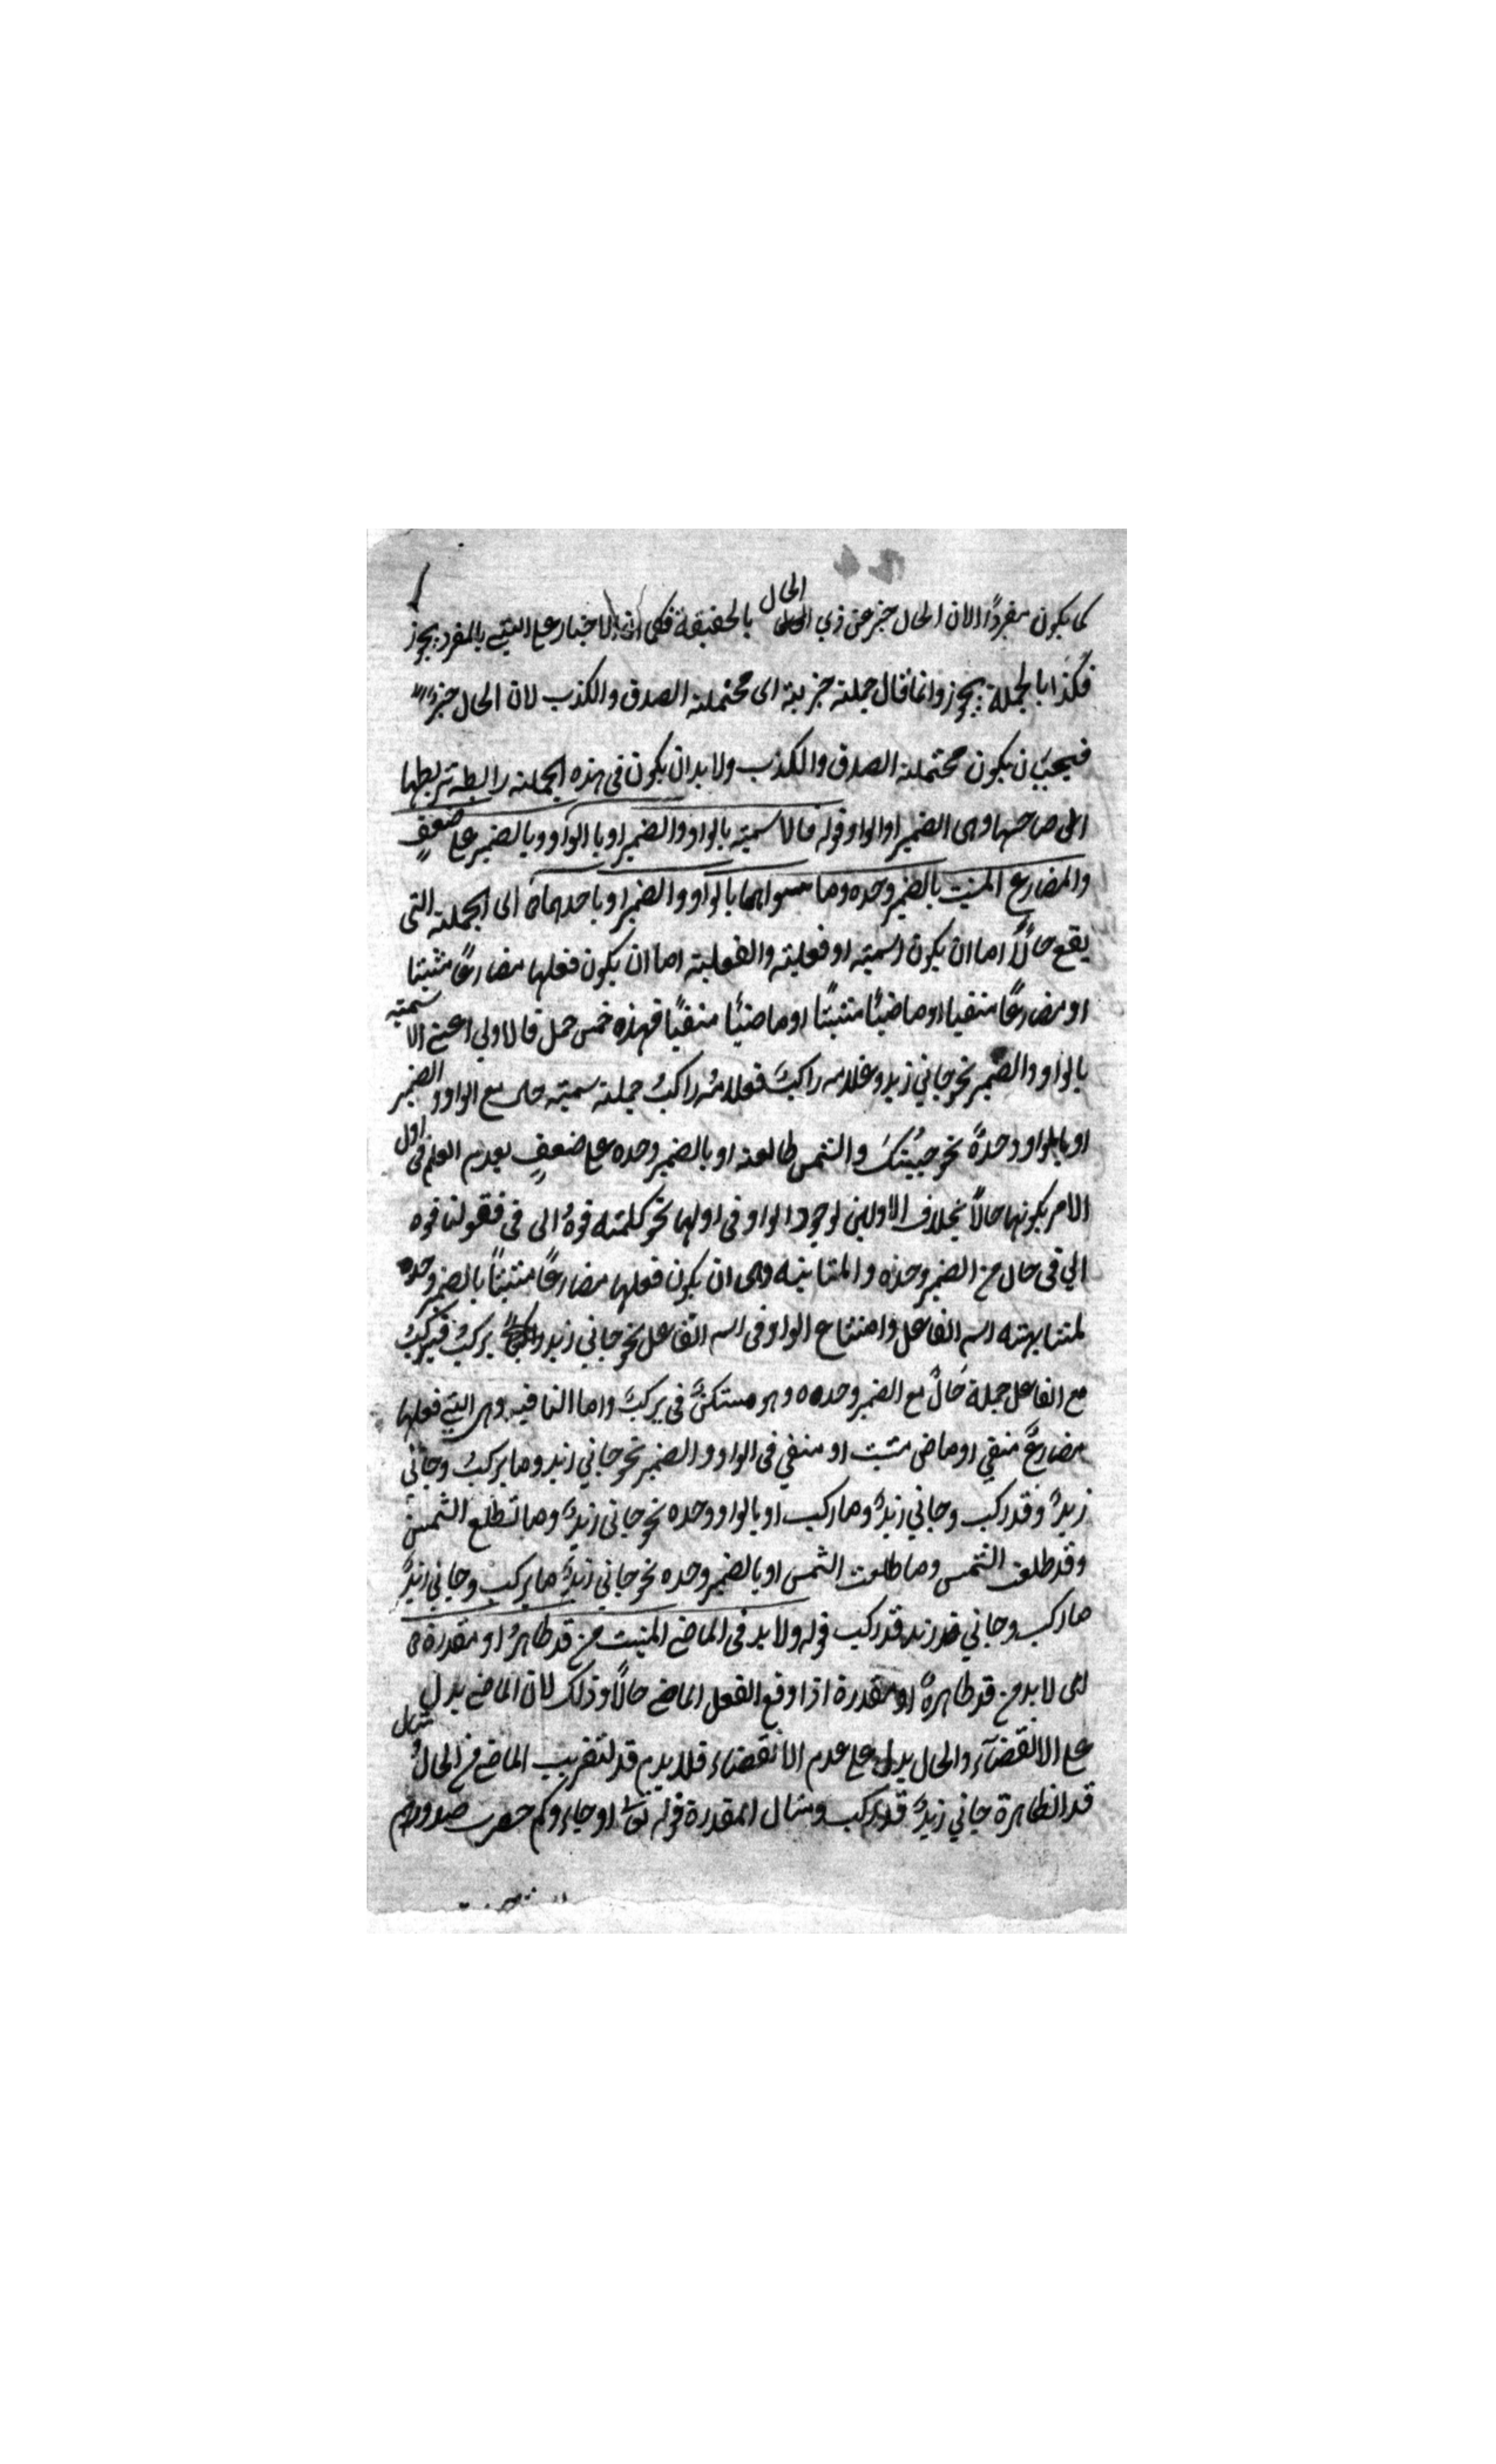 كما يكون مفردًا لان الحال خبر عن ذي الحال بالحقيقة فكما ان الاخبار على الشيء بالمفرد يجوز
فكذا بالجملة يجوز وانما قال جملة خبرية اى محتملة الصدق والكذب لان الحال خبرٌ
فيجب ان يكون محتملة الصدق والكذب ولا بد ان يكون فى هذه الجملة رابطة تربطها
الى صاحبها وهى الضمير او الواو قوله فالاسمية بالواو والضمير او بالواو وبالضمير على ضعفٍ
والمضارع المثبت بالضمير وحده وما سواهما بالواو والضمير او باحدهما اى الجملة التى
يقع حالًا اما ان يكون اسمية او فعلية والفعلية اما ان يكون فعلها مضارعًا مثبتا
او مضارعًا منفيا او ماضيًا مثبتًا او ماضيًا منفيًا فهذه خمس جمل فالاولي اعنى الاسمية
بالواو والضمير نحو جاني زيد وغلامه راكبٌ فغلامُه راكبٌ جملة سمية حال مع الواو والضمير
او بالواو وحدهً نحو جيئتكَ والشمس طالعة او بالضمير وحده على ضعفٍ بعدم العلم فى اول
الامر بكونها حالاً بخلاف الاولين لوجود الواو فى اولها نحو كلمته فوهُ الى فى فقولنا فوه
الي فى حال مع الضمير وحده والثانية وهى ان يكون فعلها مضارعًا مثبتًا بالضمير وحده
لمشابهته اسم الفاعل وامتناع الواو فى اسم الفاعل نحو جاني زيد يركبُ فيركبُ
مع الفاعل جملة حالٌ مع الضمير وحده وهو مستكنٌّ فى يركبُ واما النافية وهى التى فعلها
مضارعٌ منفي او ماضى مثبت او منفي فى الواو والضمير نحو جاني زيد وما يركبُ وجانى
زيدٌ وقد ركب وجاني زيدٌ وما ركب او بالواو وحده نحو جانى زيدٌ وما تطلع الشمسُ
وقد طلعت الشمس وما طلعت الشمس او بالضمير وحده نحو جاني زيدٌ ما يركب وجاني زيدٌ
ما ركب وجاني زيد قد ركب قوله ولا بد فى الماضى المثبت من قد ظاهرةً او مقدرة
اى لا بد من قد ظاهرةً او مقدرة اذا وقع الفعل الماضى حالًا وذلك لان الماضى يدل
على الانقضآء والحال يدل على عدم الانقضاء فلا بد من قد لتقريب الماضى من الحال مثال
قد الظاهرة جاني زيدٌ قد ركب ومثال المقدرة قوله تعالى او جاءوكم حصرت صدورهم